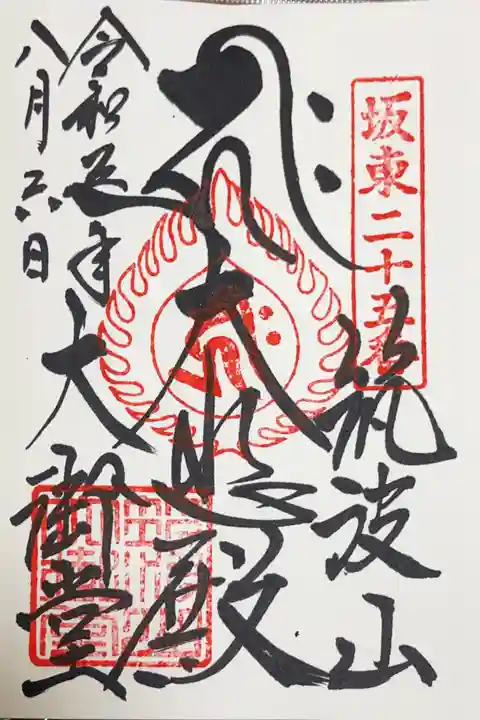 坂東二十五番
筑波山
大悲殿
大御堂
令和五年
八月六日